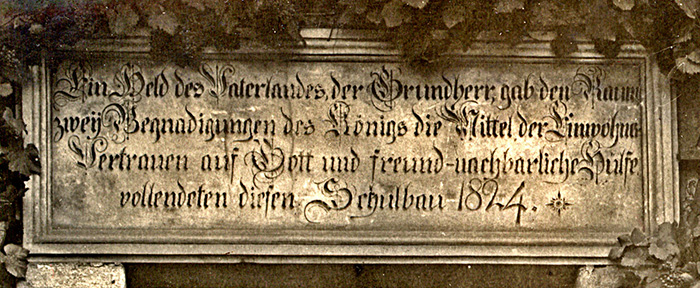 Ein Held des Vaterlandes, der Grundherr, gab den Raum
zwey Begnadigungen des Königs die Mittel der Einwohner
Vertrauen auf Gott und freund-nachbarliche Hülfe
vollendeten diesen Schulbau 1824.